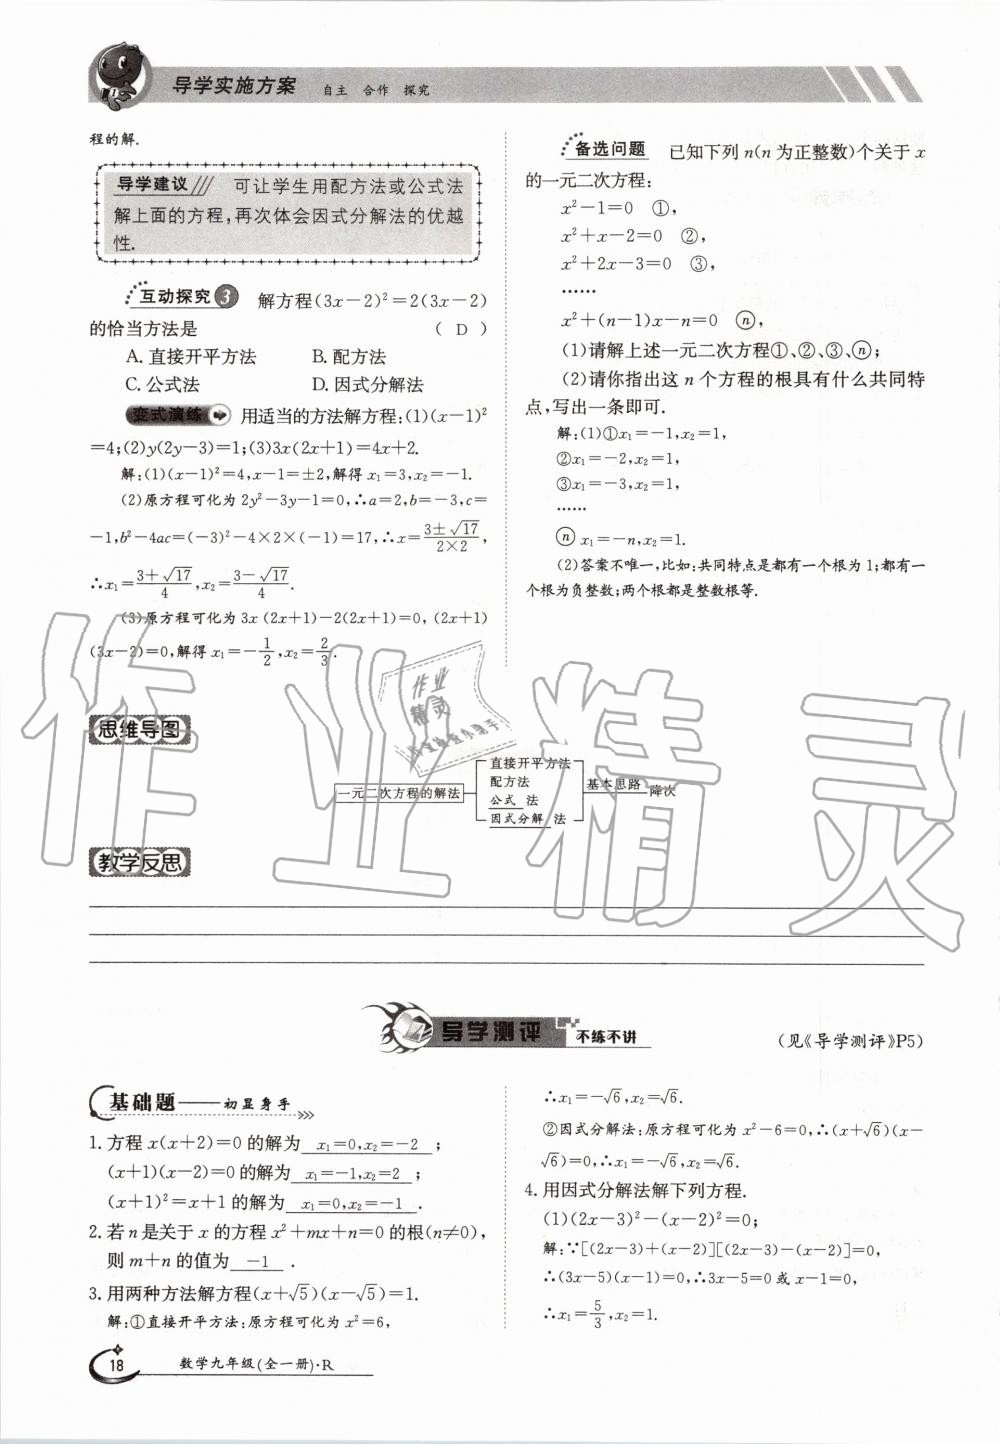 导学实施方案 自主 合作 探究
程的解.
导学建议 可让学生用配方法或公式法
解上面的方程,再次体会因式分解法的优越
性.
互动探究3 解方程(3x-2)²=2(3x-2)
的恰当方法是 ( D )
A. 直接开平方法 B. 配方法
C. 公式法 D. 因式分解法
变式演练 用适当的方法解方程:(1)(x-1)²
=4;(2)y(2y-3)=1;(3)3x(2x+1)=4x+2.
解:(1)(x-1)²=4,x-1=±2,解得 x₁=3,x₂=-1.
(2)原方程可化为 2y²-3y-1=0,∴a=2,b=-3,c=
-1,b²-4ac=(-3)²-4×2×(-1)=17,∴x=(3±√17)/(2×2),
∴x₁=(3+√17)/4,x₂=(3-√17)/4.
(3)原方程可化为 3x(2x+1)-2(2x+1)=0,(2x+1)
(3x-2)=0,解得 x₁=-1/2,x₂=2/3.
备选问题 已知下列 n(n 为正整数)个关于 x
的一元二次方程:
x²-1=0 ①,
x²+x-2=0 ②,
x²+2x-3=0 ③,
……
x²+(n-1)x-n=0 ⓝ,
(1)请解上述一元二次方程①、②、③、ⓝ;
(2)请你指出这 n 个方程的根具有什么共同特
点,写出一条即可.
解:(1)①x₁=-1,x₂=1,
②x₁=-2,x₂=1,
③x₁=-3,x₂=1,
……
ⓝ x₁=-n,x₂=1.
(2)答案不唯一,比如:共同特点是都有一个根为 1;都有一
个根为负整数;两个根都是整数根等.
思维导图
一元二次方程的解法
直接开平方法
配方法
公式 法
因式分解 法
基本思路 降次
教学反思
作业精灵
作业
精灵
导学测评 不练不讲 (见《导学测评》P5)
基础题——初显身手
1. 方程 x(x+2)=0 的解为 x₁=0,x₂=-2 ;
(x+1)(x-2)=0 的解为 x₁=-1,x₂=2 ;
(x+1)²=x+1 的解为 x₁=0,x₂=-1 .
2. 若 n 是关于 x 的方程 x²+mx+n=0 的根(n≠0),
则 m+n 的值为 -1 .
3. 用两种方法解方程(x+√5)(x-√5)=1.
解:①直接开平方法:原方程可化为 x²=6,
∴x₁=-√6,x₂=√6.
②因式分解法:原方程可化为 x²-6=0,∴(x+√6)(x-
√6)=0,∴x₁=-√6,x₂=√6.
4. 用因式分解法解下列方程.
(1)(2x-3)²-(x-2)²=0;
解:∵[(2x-3)+(x-2)][(2x-3)-(x-2)]=0,
∴(3x-5)(x-1)=0,∴3x-5=0 或 x-1=0,
∴x₁=5/3,x₂=1.
18 数学九年级(全一册)·R